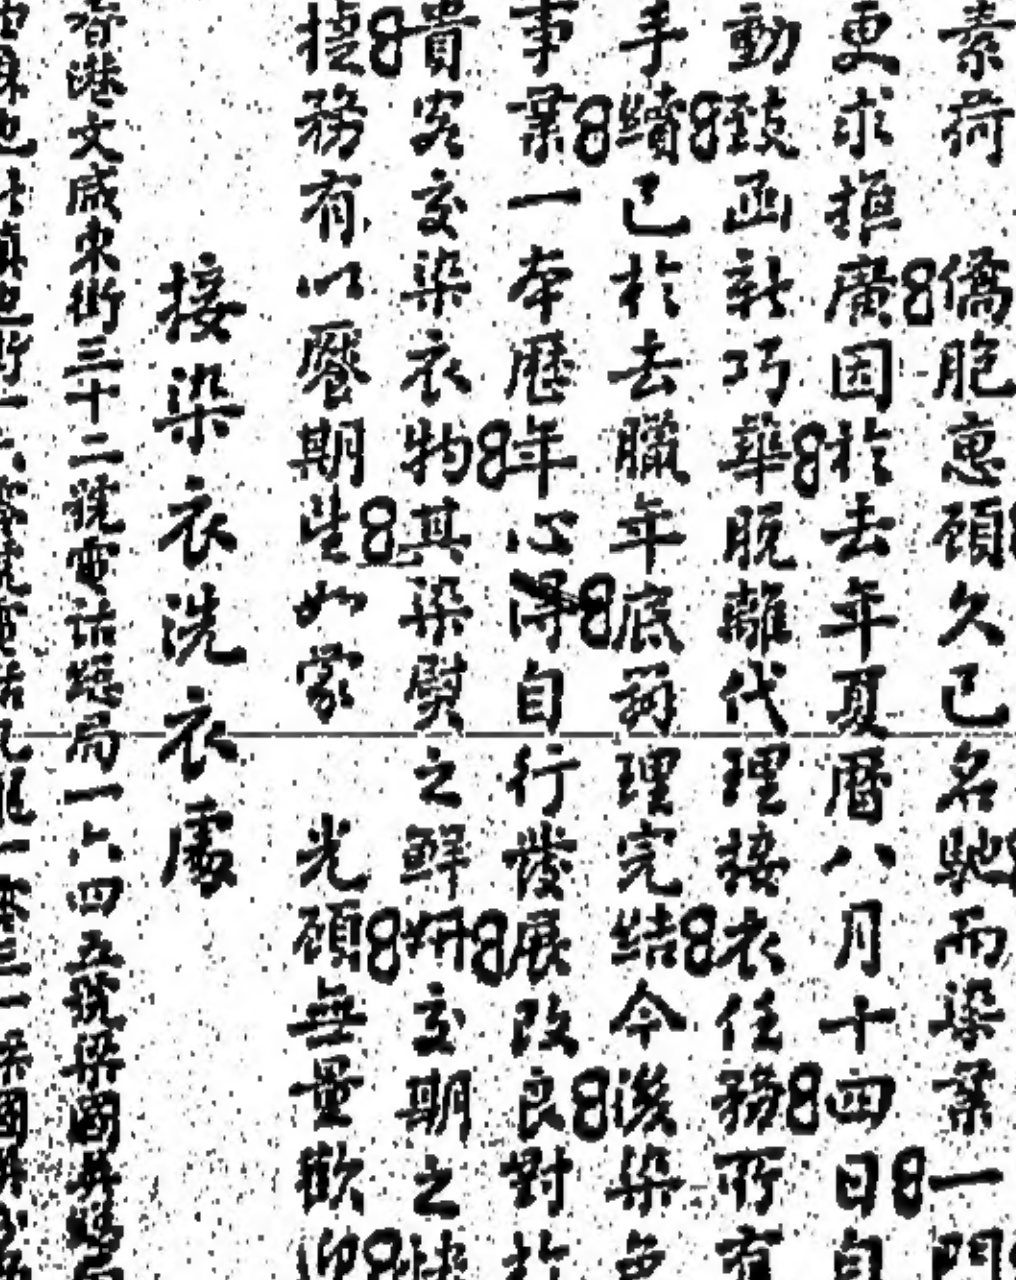 素荷 僑胞惠顧久已名馳而染業一門
更求推廣因於去年夏曆八月十四日自
動致函新巧華脫離代理接衣任務所有
手續已於去臘年底辦理完結今後染色
事業一本歷年心得自行發展改良對於
貴客交染衣物其染熨之鮮妍交期之快
捷務有以饜期望如蒙 光顧無量歡迎
接染衣洗衣處
香港文咸東街三十二號電話總局一六四五號梁國英